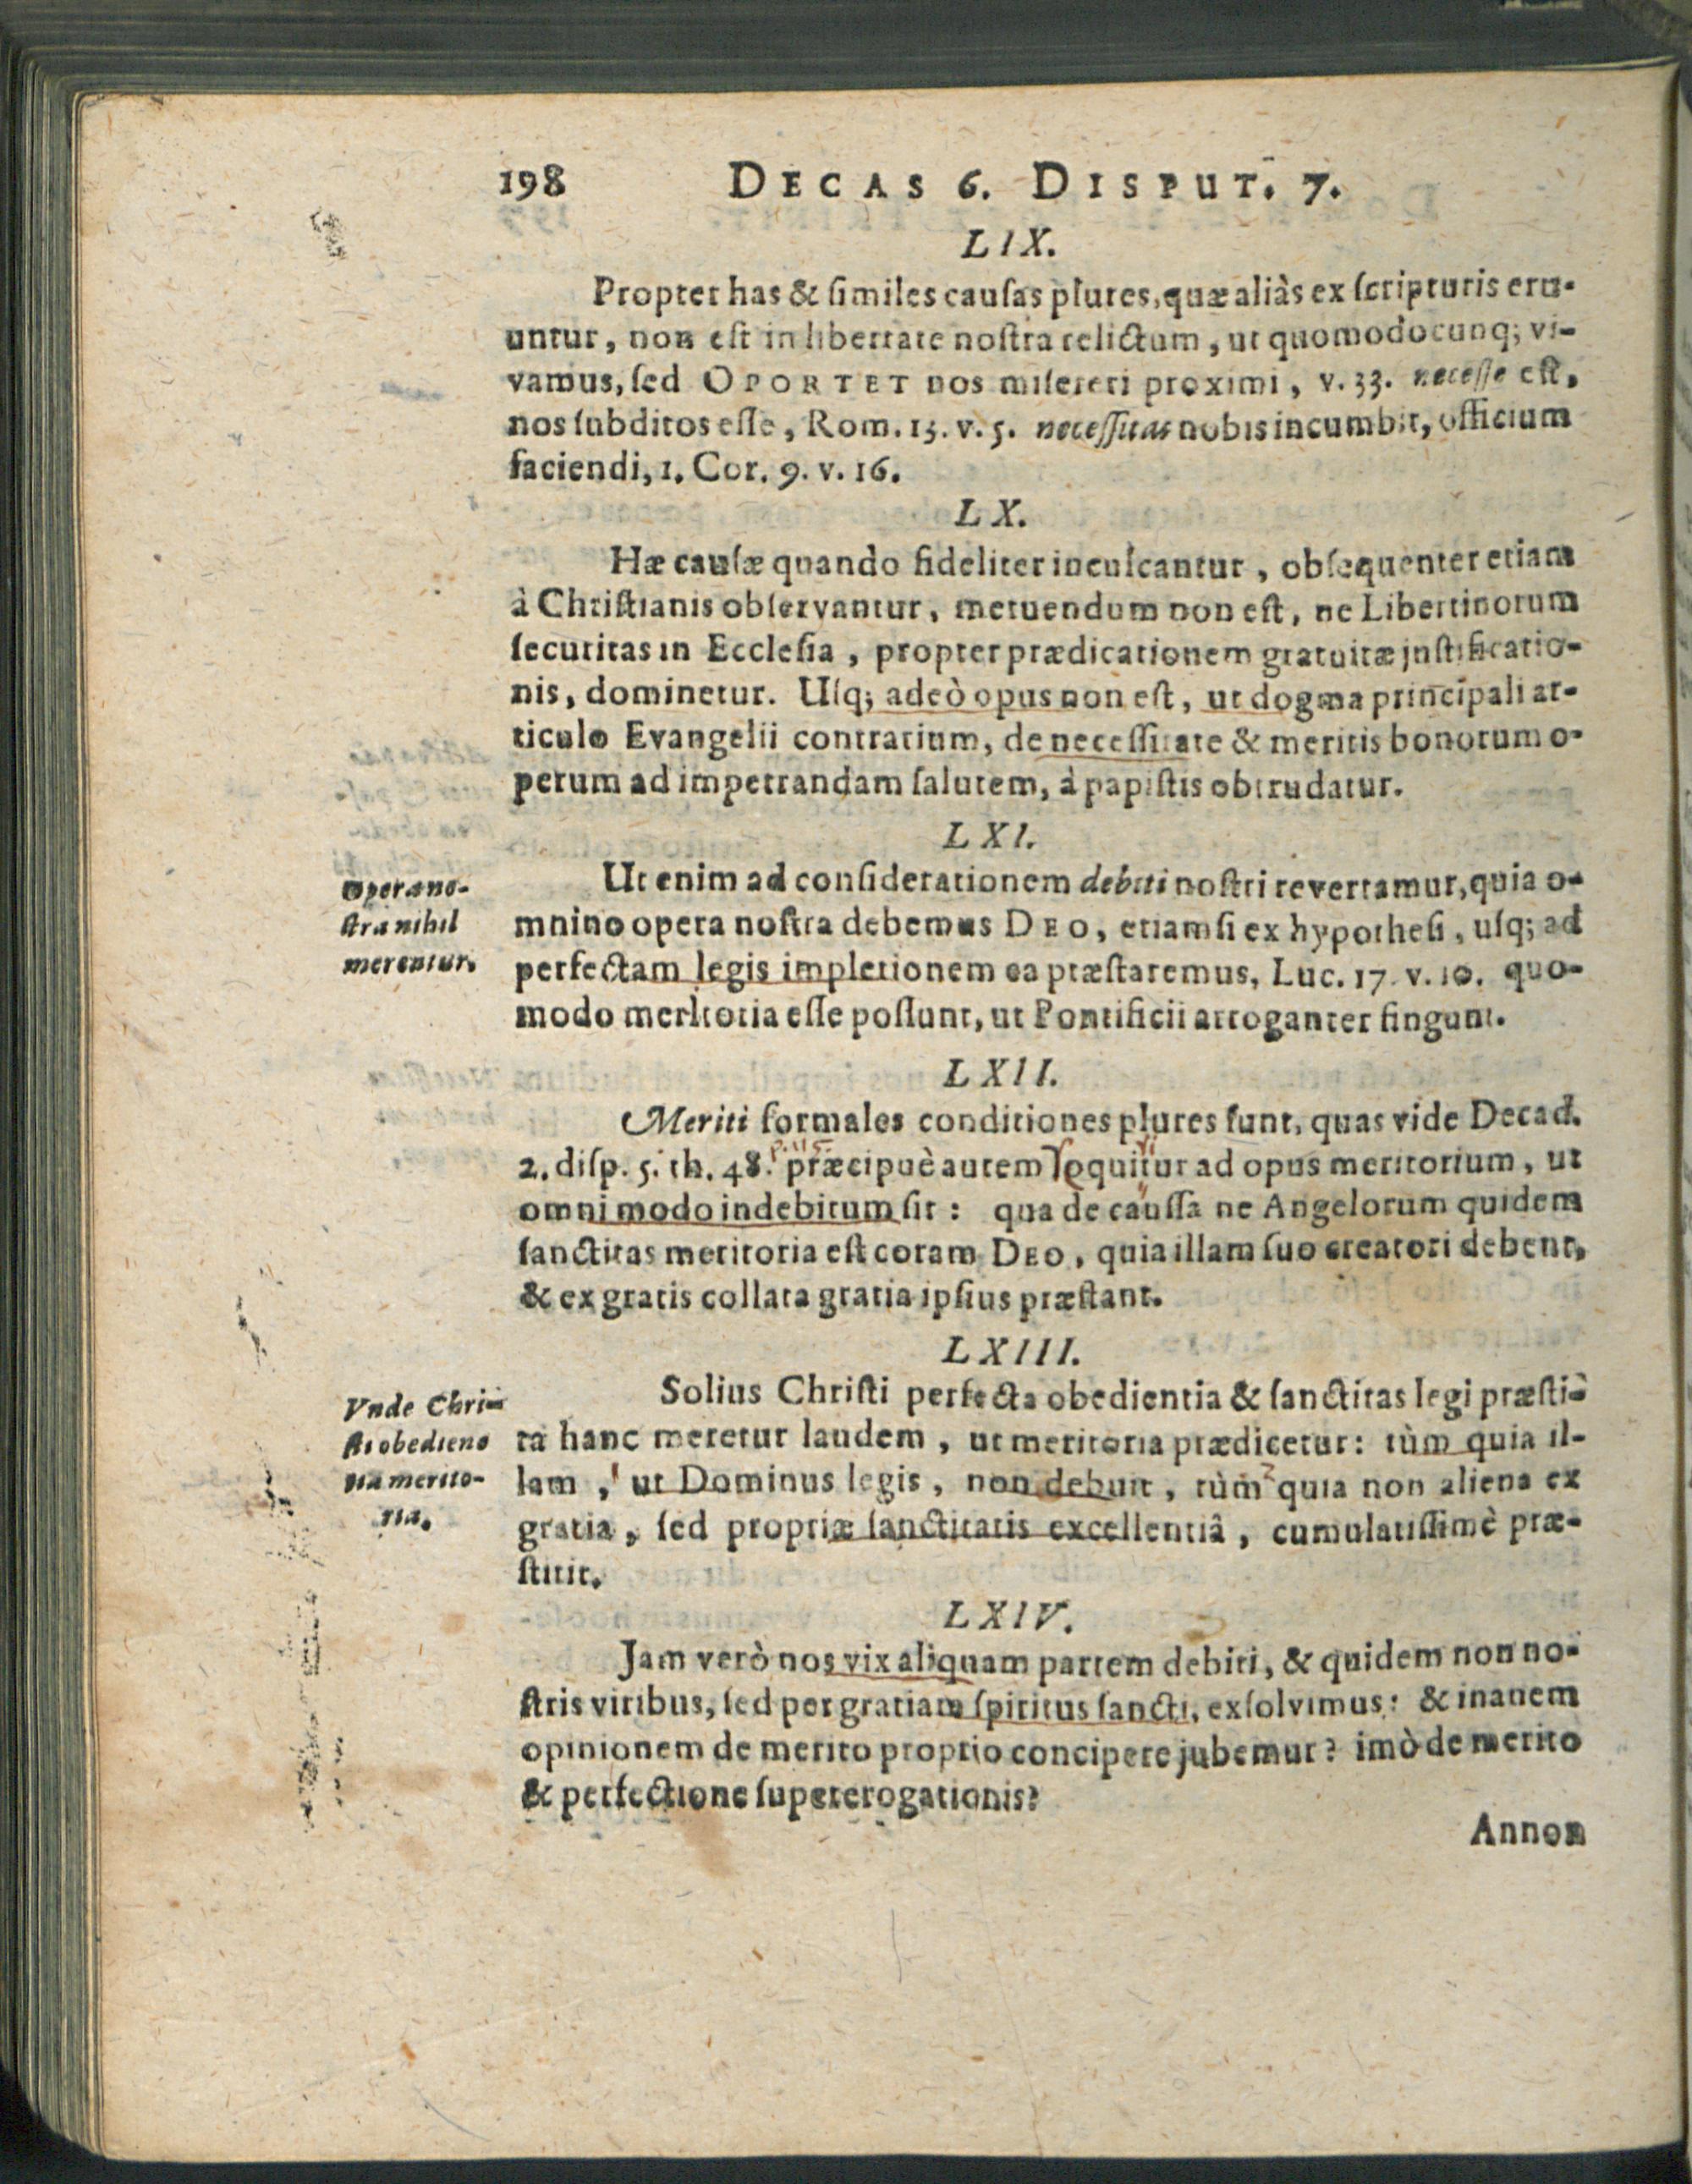 198 DECAS 6. DISPUT. 7.
LIX.
Propter has & ſimiles cauſas plures, quæ aliàs ex ſcripturis eru-
untur, non eſt in libertate noſtra relictum, ut quomodocunq; vi-
vamus, ſed OPORTET nos miſereri proximi, v. 33. neceſſe eſt,
nos ſubditos eſſe, Rom. 13. v. 5. neceſſitas nobis incumbit, officium
faciendi, 1. Cor. 9. v. 16.
LX.
Hæ cauſæ quando fideliter inculcantur, obſequenter etiam
à Chriſtianis obſervantur, metuendum non eſt, ne Libertinorum
ſecuritas in Eccleſia, propter prædicationem gratuitæ juſtificatio-
nis, dominetur. Uſq; adeò opus non eſt, ut dogma principali ar-
ticulo Evangelii contrarium, de neceſſitate & meritis bonorum o-
perum ad impetrandam ſalutem, à papiſtis obtrudatur.
LXI.
Opera no-
ſtra nihil
merentur.
Ut enim ad conſiderationem debiti noſtri revertamur, quia o-
mnino opera noſtra debemus DEO, etiamſi ex hypotheſi, uſq; ad
perfectam legis impletionem ea præſtaremus, Luc. 17. v. 10. quo-
modo meritoria eſſe poſſunt, ut Pontificii arroganter fingunt.
LXII.
Meriti formales conditiones plures ſunt, quas vide Decad.
2. diſp. 5. th. 48. p. 115 præcipuè autem requiritur ad opus meritorium, ut
omnimodo indebitum ſit: qua de cauſſa ne Angelorum quidem
ſanctitas meritoria eſt coram DEO, quia illam ſuo creatori debent,
& ex gratis collata gratia ipſius præſtant.
LXIII.
Vnde Chri-
ſti obedien-
tia merito-
ria.
Solius Chriſti perfecta obedientia & ſanctitas legi præſti-
ta hanc meretur laudem, ut meritoria prædicetur: tùm quia il-
lam, 1 ut Dominus legis, non debuit, tùm 2 quia non aliena ex
gratia, ſed propriæ ſanctitatis excellentiâ, cumulatiſſimè præ-
ſtitit.
LXIV.
Jam verò nos vix aliquam partem debiti, & quidem non no-
ſtris viribus, ſed per gratiam ſpiritus ſancti, exſolvimus: & inanem
opinionem de merito proprio concipere jubemur? imò de merito
& perfectione ſupererogationis?
Annon